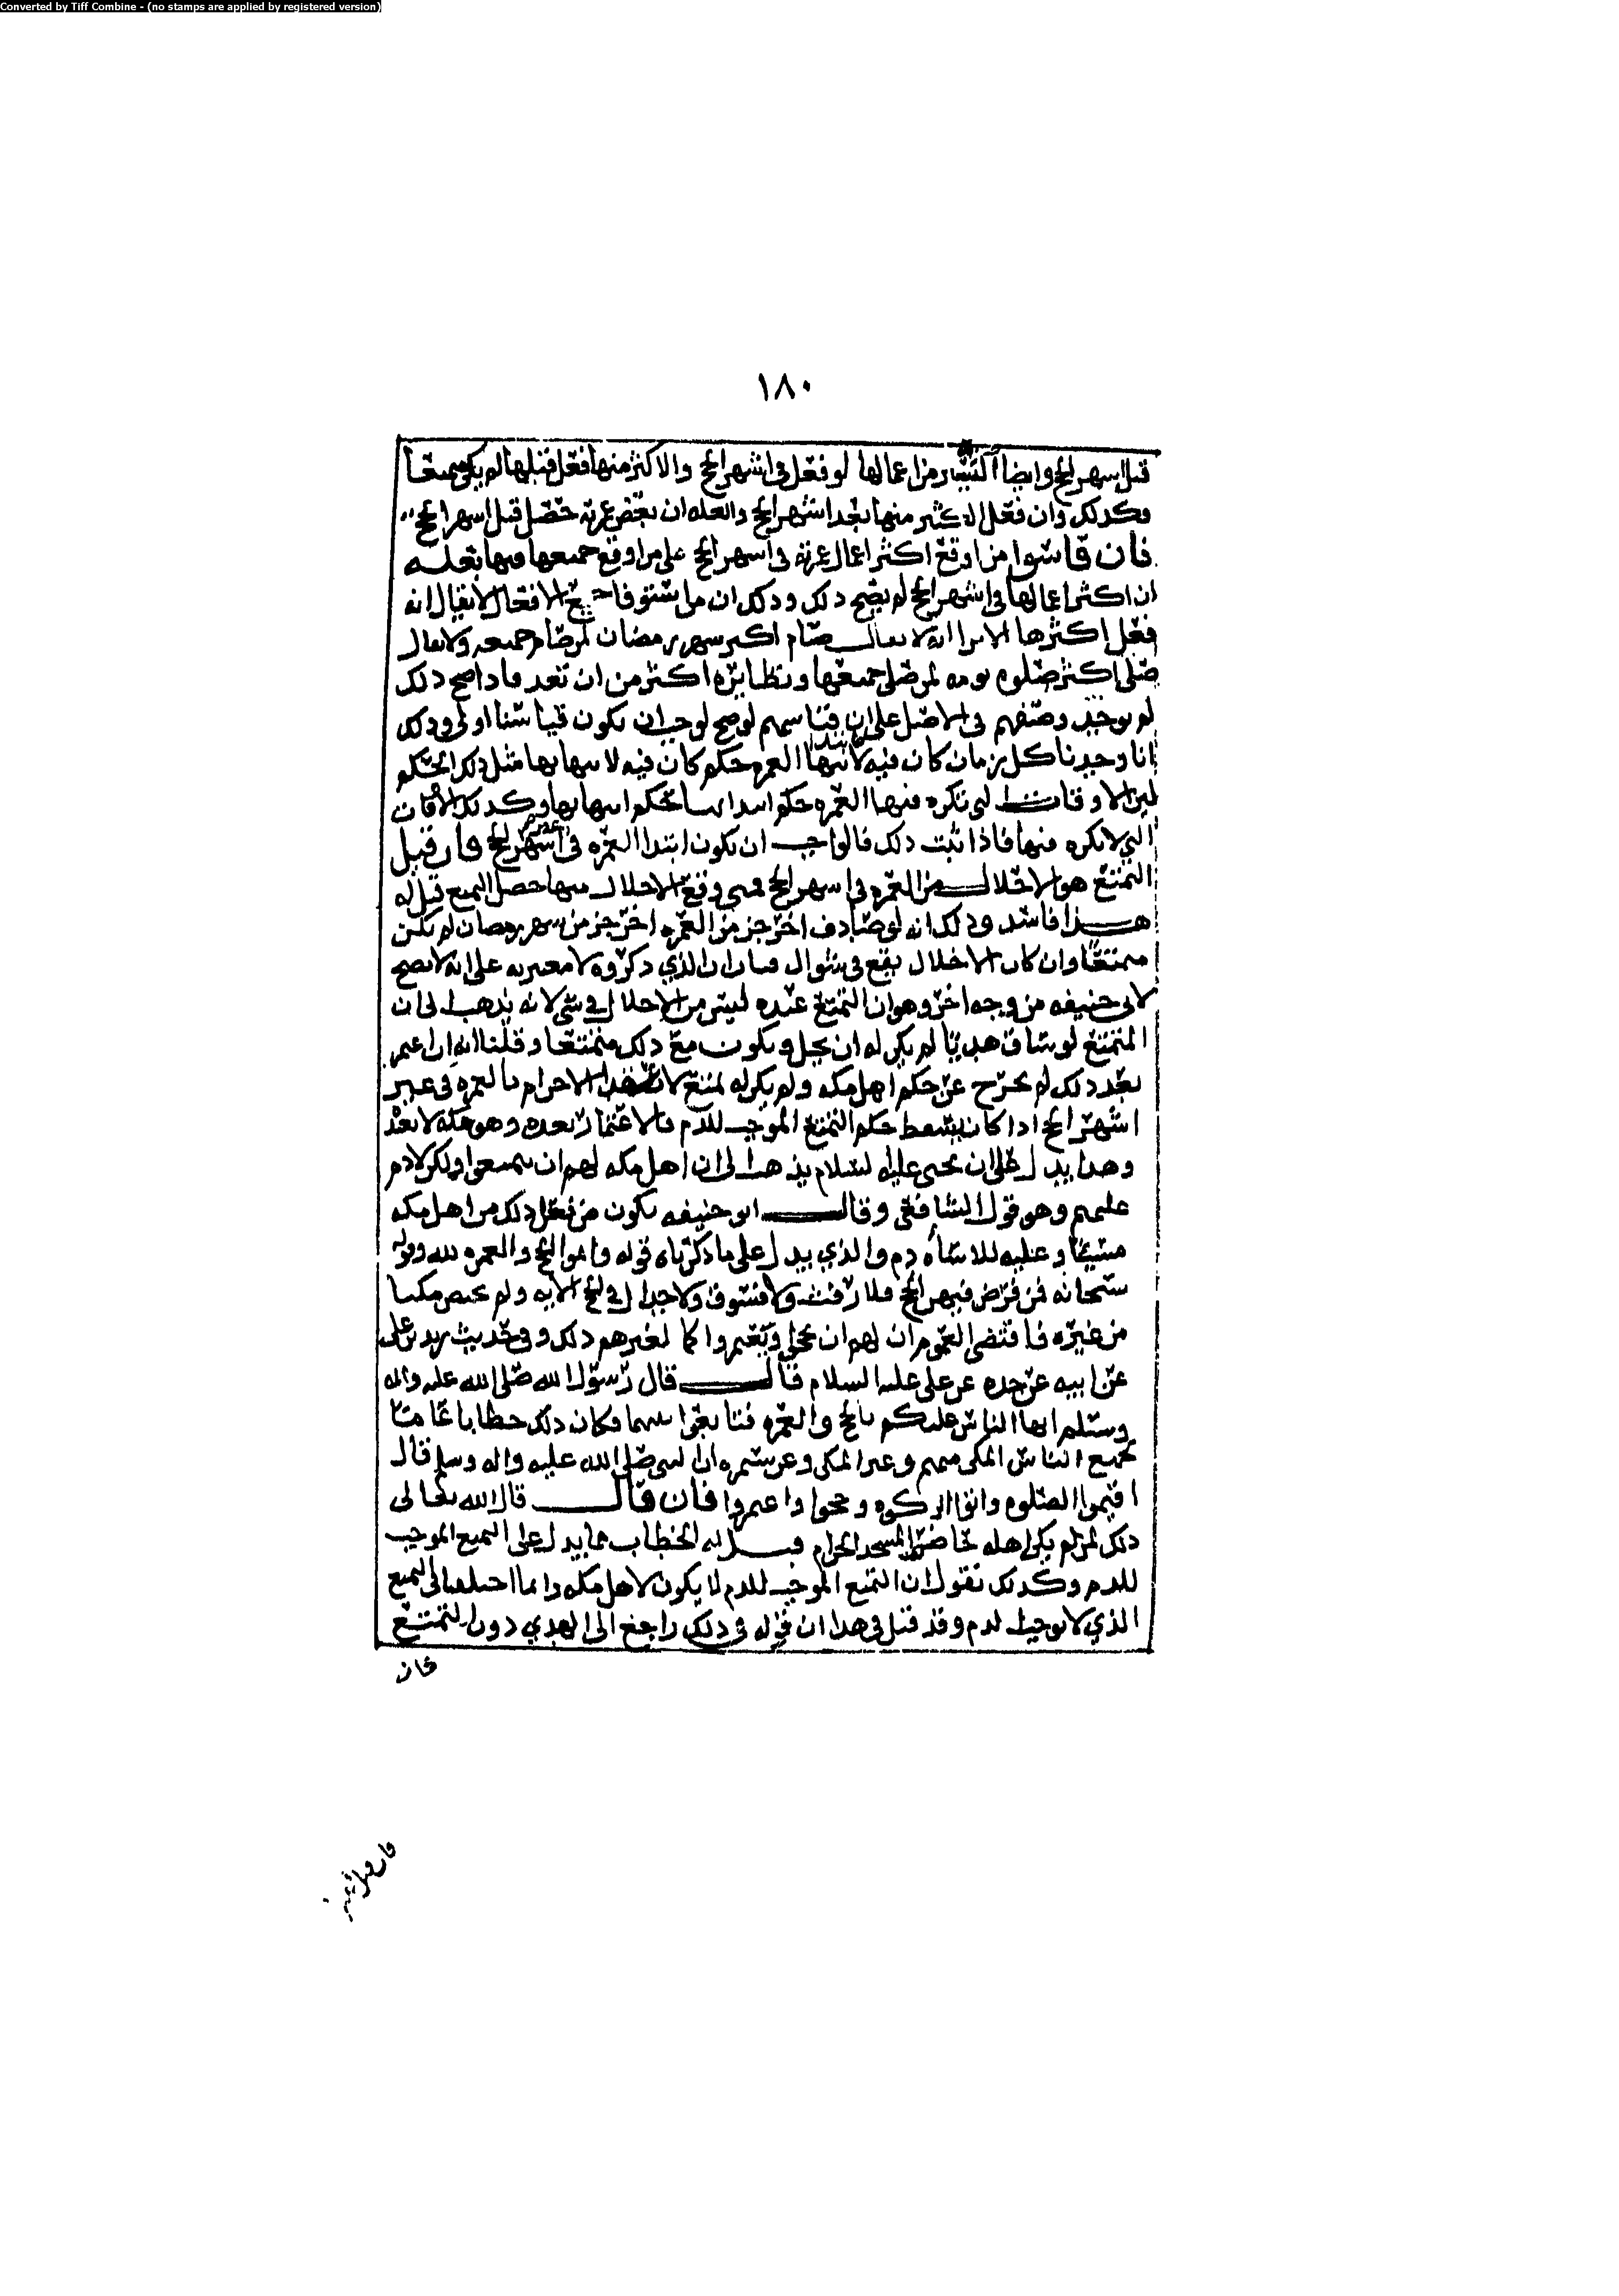 Converted by Tiff Combine - (no stamps are applied by registered version)
١٨٠
قبل اشهر الحج وايضا اليسير من اعمالها لو فعل في اشهر الحج والاكثر منها فعل قبلها لم يكن متمتعا
وكذلك وان فعل الاكثر منها بعد اشهر الحج والعله ان بعض عمرته حصل قبل اشهر الحج
فان قاسوا من اوقع اكثر اعمال عمرته في اشهر الحج على من اوقع جميعها فيها بعله
ان اكثر اعمالها في اشهر الحج لم يصح ذلك وذلك ان من استوفا جميع الافعال لا يقال انه
فعل اكثرها الا ترا انه لا يقال صام اكثر شهر رمضان لمن صام جميعه ولا يقال
صلى اكثر صلوه يومه لمن صلى جميعها ونظايره اكثر من ان تعد فاذا صح ذلك
لم يوجد وصفهم في الاصل على ان قياسهم لو صح لوجب ان يكون قياسنا اولى وذلك
انا وجدنا كل زمان كان فيه لابتدا العمره حكم كان فيه لانتهايها مثل ذلك الحكم
لان الاوقات التي تكره فيها العمره حكم ابتدايها حكم انتهايها وكذلك الاوقات
التي لا تكره فيها فاذا ثبت ذلك فالواجب ان يكون ابتدا العمره في اشهر الحج فان قيل
التمتع هو الاحلال من العمره في اشهر الحج فمتى وقع الاحلال فيها حصل التمتع قيل له
هذا فاسد وذلك انه لو صادف اخر جز من العمره اخر جز من شهر رمضان لم يكن
متمتعا وان كان الاحلال يقع في شوال فبان ان الذي ذكروه لا معتبر به على انه لا يصح
لابي حنيفه من وجه اخر وهو ان التمتع عنده ليس من الاحلال في شي لانه يذهب الى ان
المتمتع لو ساق هديا لم يكن له ان يحل ويكون مع ذلك متمتعا وقلنا انه ان اعتمر
بعد ذلك لم يخرج عن حكم اهل مكه ولم يكن له تمتع لان الاحرام بالعمره في غير
اشهر الحج اذا كان يسقط حكم التمتع الموجب للدم فالاعتمار بعده وهو بمكه لا يعد
وهذا يدل على ان يحيى عليه السلام يذهب الى ان اهل مكه لهم ان يتمتعوا ولكن لا دم
عليهم وهو قول الشافعي وقال ابو حنيفه يكون من فعل ذلك من اهل مكه
مسيئا وعليه للاساه دم والذي يدل على ما ذكرناه قوله واتموا الحج والعمره لله وقوله
سبحانه فمن فرض فيهن الحج فلا رفث ولا فسوق ولا جدال في الحج الآيه ولم يخص مكيا
من غيره فاقتضى العموم ان لهم ان يحجوا ويعتمروا كما لغيرهم ذلك وفي حديث زيد بن علي
عن ابيه عن جده عن علي عليه السلام قال قال رسول الله صلى الله عليه واله
وسلم ايها الناس عليكم بالحج والعمره فتابعوا بينهما فكان ذلك خطابا عاما
لجميع الناس المكي منهم وغير المكي وعن سمره ان النبي صلى الله عليه واله وسلم قال
اقيموا الصلوه واتوا الزكوه وحجوا واعتمروا فان قال قال الله تعالى
ذلك لمن لم يكن اهله حاضري المسجد الحرام قيل له الخطاب مما يدل على التمتع الموجب
للدم وكذلك نقول ان التمتع الموجب للدم لا يكون لاهل مكه وانما اختلفنا في التمتع
الذي لا يوجب الدم وقد قيل في هذا ان قوله في ذلك راجع الى الهدي دون التمتع
فان